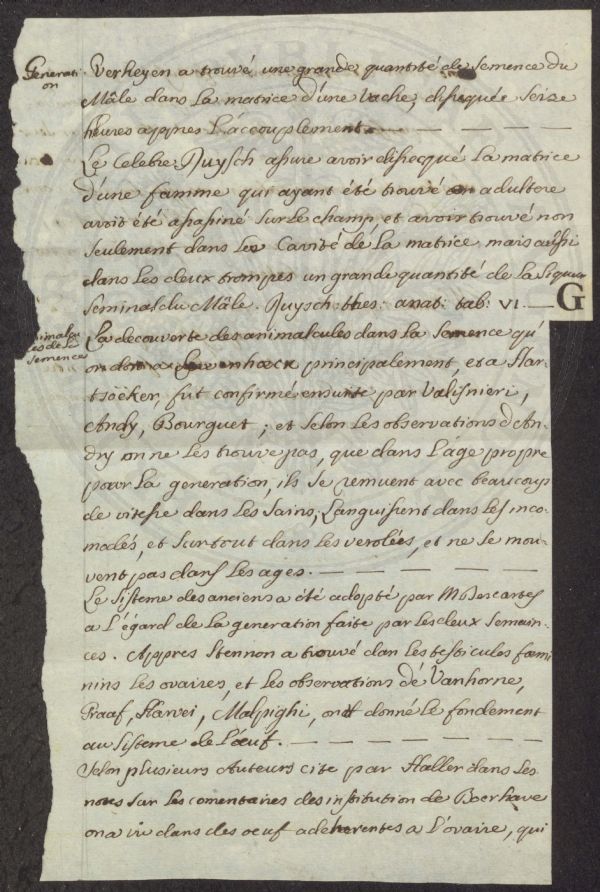 Generati
on
Verheyen a trouvé une grande quantité de Semence du
Mâle dans La matrice d'une Vache, disequée Seize
heures appres L'accouplement. — — — — —
Le Celebre Ruysch asure avoir dissequé La matrice
d'une famme qui ayant été trouvé en adultere
avoit été assasiné Sur Le champ, et avoir trouvé non
Seulement dans Les Cavité de La matrice mais aussi
dans Les deux trompes un grande quantité de La Liqueur
Seminal du Mâle. Ruysch: thes: anat: tab: VI. — G
La decouverte des animalcules dans La Semence qu'
on doit a Leeuenhoeck principalement, et a Har-
tsöeker, fut confirmé ensuite par Valisnieri,
Andy, Bourguet; et Selon Les observations d'An-
dry on ne Les trouve pas, que dans L'âge propre
pour La generation, ils Se remuent avec beaucoup
de vitesse dans Les Sains, Languissent dans Les inco-
modés, et Surtout dans Les verolées, et ne Se mou-
vent pas dans Les ages. — — — — —
Le Sisteme des anciens a été adopté par M. Descartes
a L'égard de La generation faite par Les deux Semain-
ces. Appres Stennon a trouvé dan Les testicules fœmi
nins Les ovaires, et Les observations de Vanhorne,
Graaf, Harvei, Malpighi, ont donné Le fondement
au Sisteme de L'œuf. — — — — —
Selon plusieurs Auteurs cite par Haller dans Les
notes Sur Les comentaires des institution de Boerhave
on a vu dans des oeuf adeherentes a L'ovaire, qui